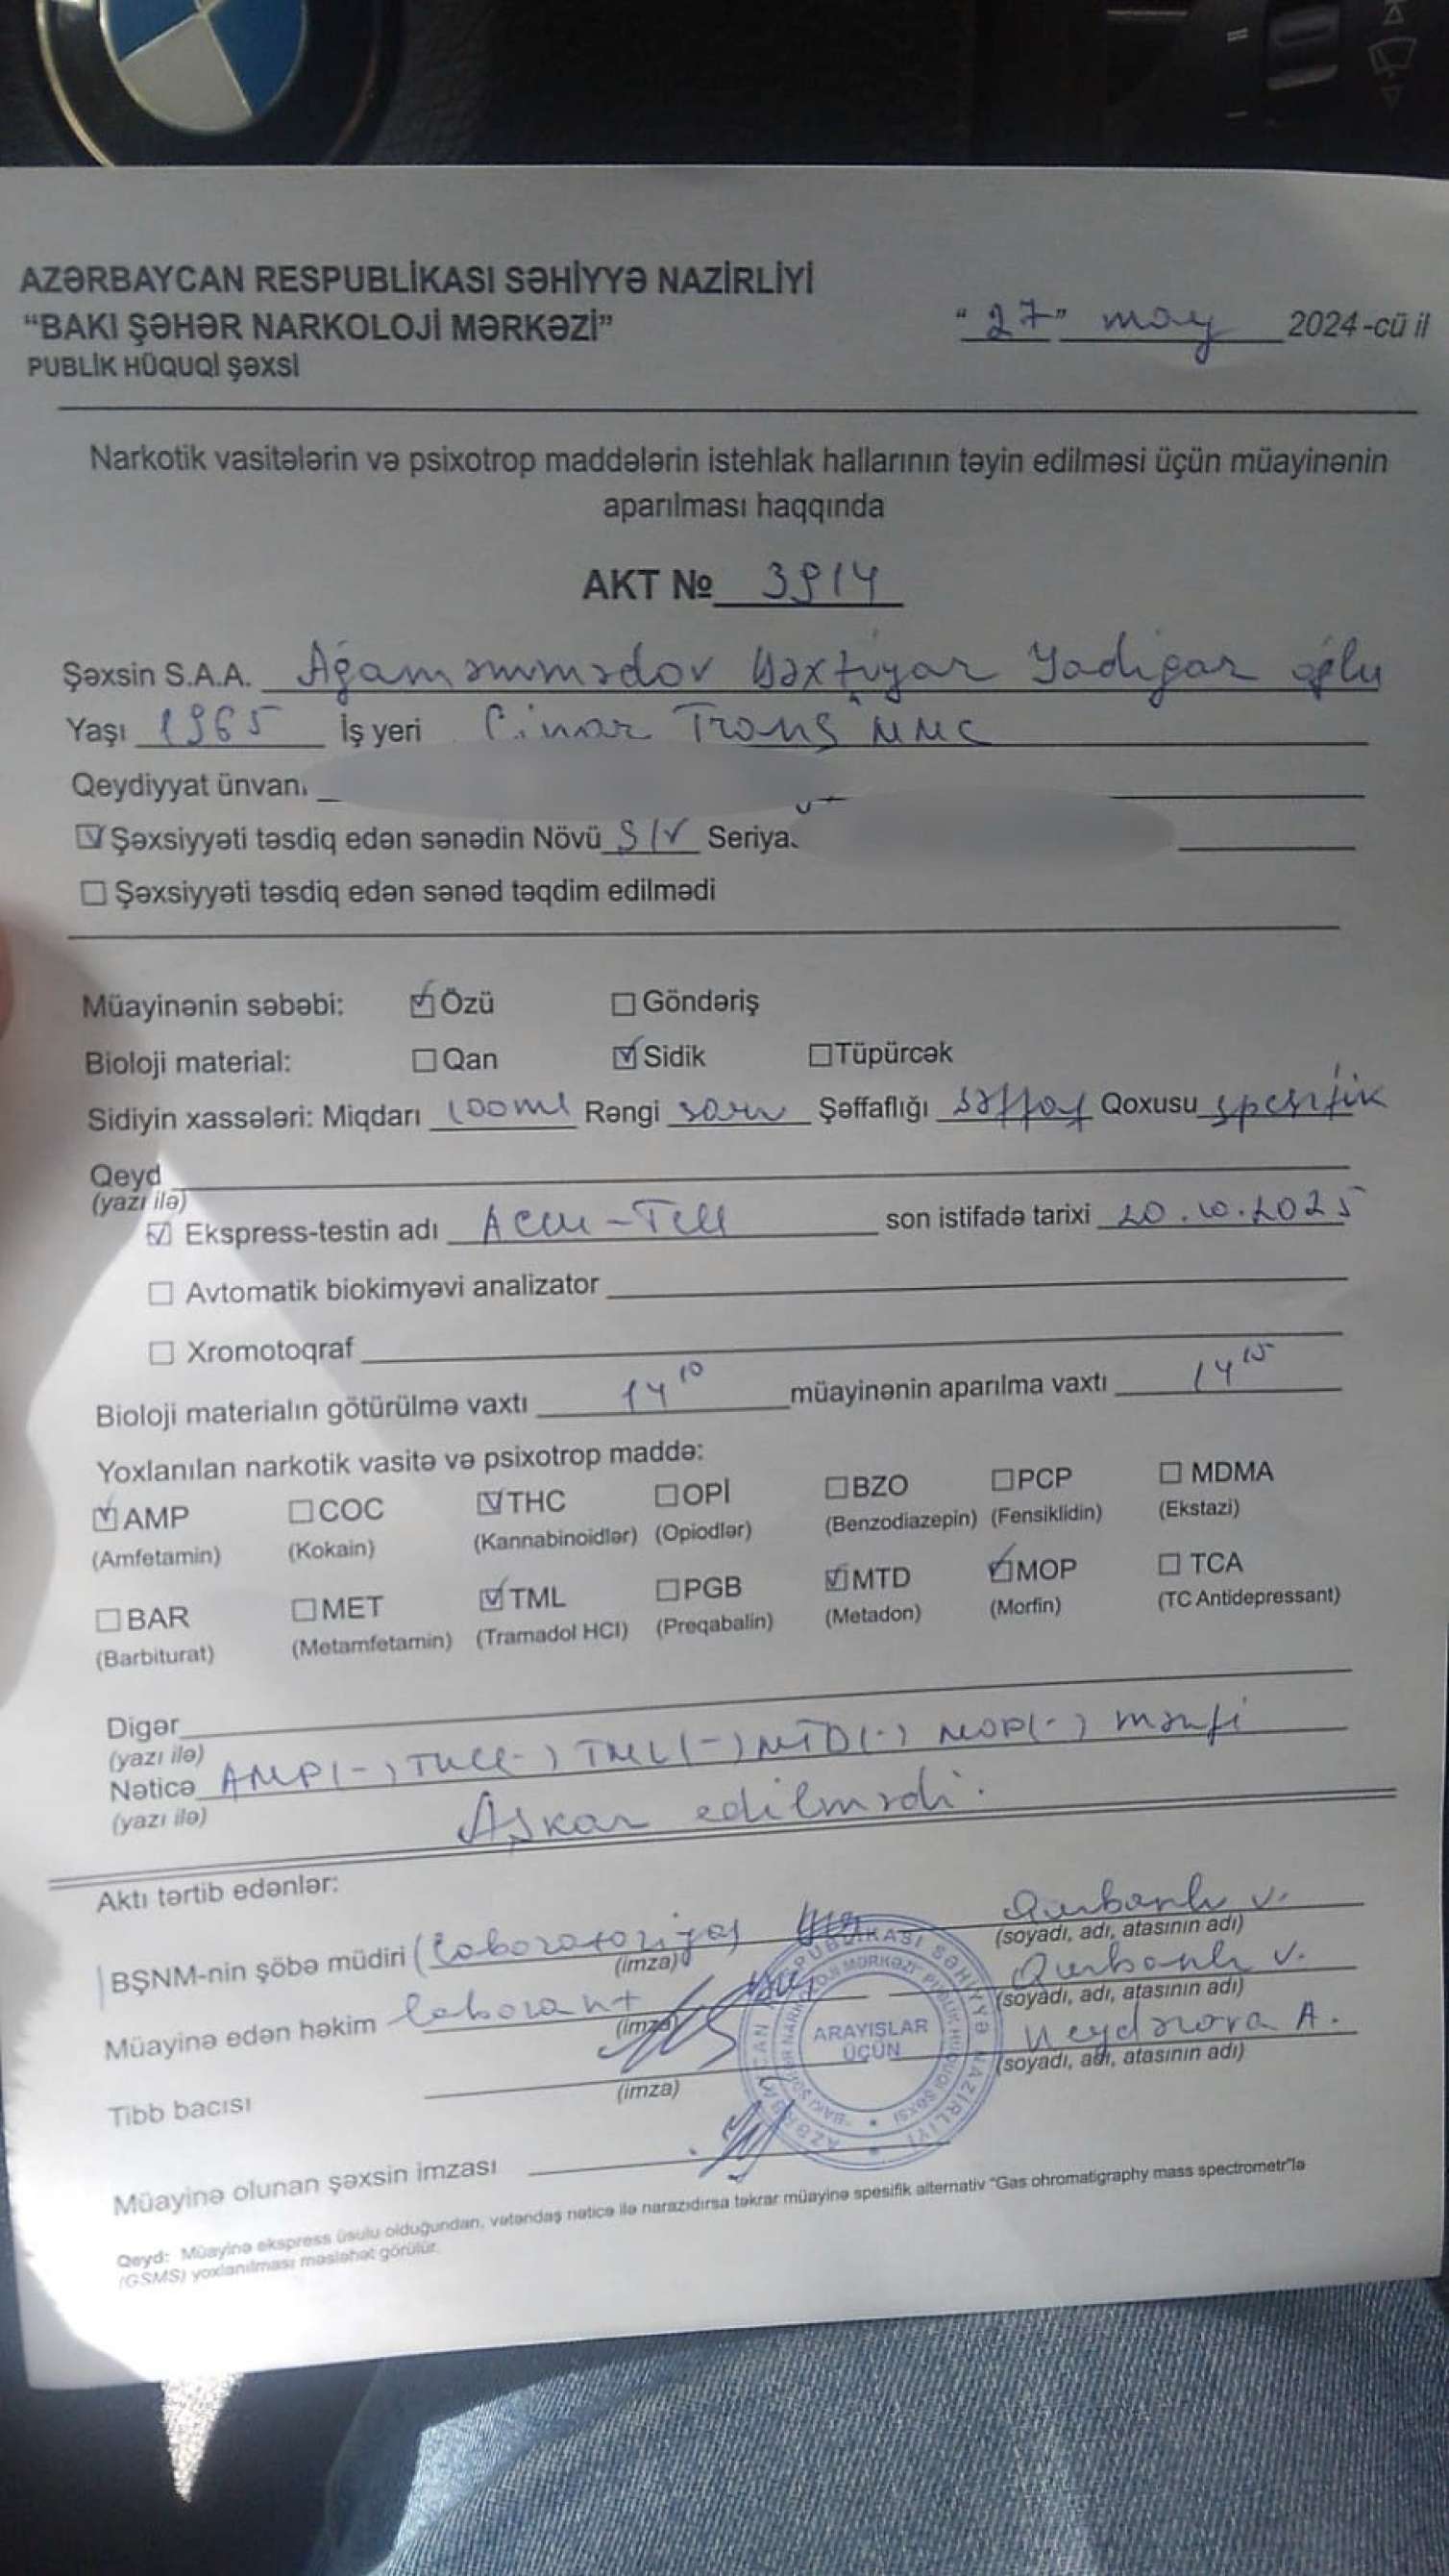 AZƏRBAYCAN RESPUBLİKASI SƏHİYYƏ NAZİRLİYİ
"BAKI ŞƏHƏR NARKOLOJİ MƏRKƏZİ"
"27" may 2024-cü il
PUBLİK HÜQUQİ ŞƏXSİ
Narkotik vasitələrin və psixotrop maddələrin istehlak hallarının təyin edilməsi üçün müayinənin
aparılması haqqında
AKT № 3914
Şəxsin S.A.A. Ağaməmmədov Bəxtiyar Yadigar oğlu
Yaşı 1965 İş yeri Çinar Trans MMC
Qeydiyyat ünvanı
Şəxsiyyəti təsdiq edən sənədin Növü Ş/V Seriya
Şəxsiyyəti təsdiq edən sənəd təqdim edilmədi
Müayinənin səbəbi: Özü Göndəriş
Bioloji material: Qan Sidik Tüpürcək
Sidiyin xassələri: Miqdarı 100ml Rəngi sarı Şəffaflığı şəffaf Qoxusu spesifik
Qeyd
(yazı ilə)
Ekspress-testin adı Accu-Tell son istifadə tarixi 20.10.2025
Avtomatik biokimyəvi analizator
Xromotoqraf
Bioloji materialın götürülmə vaxtı 14 10 müayinənin aparılma vaxtı 14 15
Yoxlanılan narkotik vasitə və psixotrop maddə:
AMP COC THC OPİ BZO PCP MDMA
(Amfetamin) (Kokain) (Kannabinoidlər) (Opiodlər) (Benzodiazepin) (Fensiklidin) (Ekstazi)
BAR MET TML PGB MTD MOP TCA
(Barbiturat) (Metamfetamin) (Tramadol HCl) (Preqabalin) (Metadon) (Morfin) (TC Antidepressant)
Digər
(yazı ilə)
Nəticə AMP(-) THC(-) TML(-) MTD(-) MOP(-) mənfi
(yazı ilə) Aşkar edilmədi.
Aktı tərtib edənlər:
BŞNM-nin şöbə müdiri (laboratoriya) Qurbanlı V.
(imza) (soyadı, adı, atasının adı)
Müayinə edən həkim laborant Qurbanlı V.
(imza) (soyadı, adı, atasının adı)
Tibb bacısı Heydərova A.
(imza) (soyadı, adı, atasının adı)
ARAYIŞLAR
ÜÇÜN
Müayinə olunan şəxsin imzası
Qeyd: Müayinə ekspress üsulu olduğundan, vətəndaş nəticə ilə narazıdırsa təkrar müayinə spesifik alternativ "Gas ohromatigraphy mass spectrometr"lə
(GSMS) yoxlanılması məsləhət görülür.